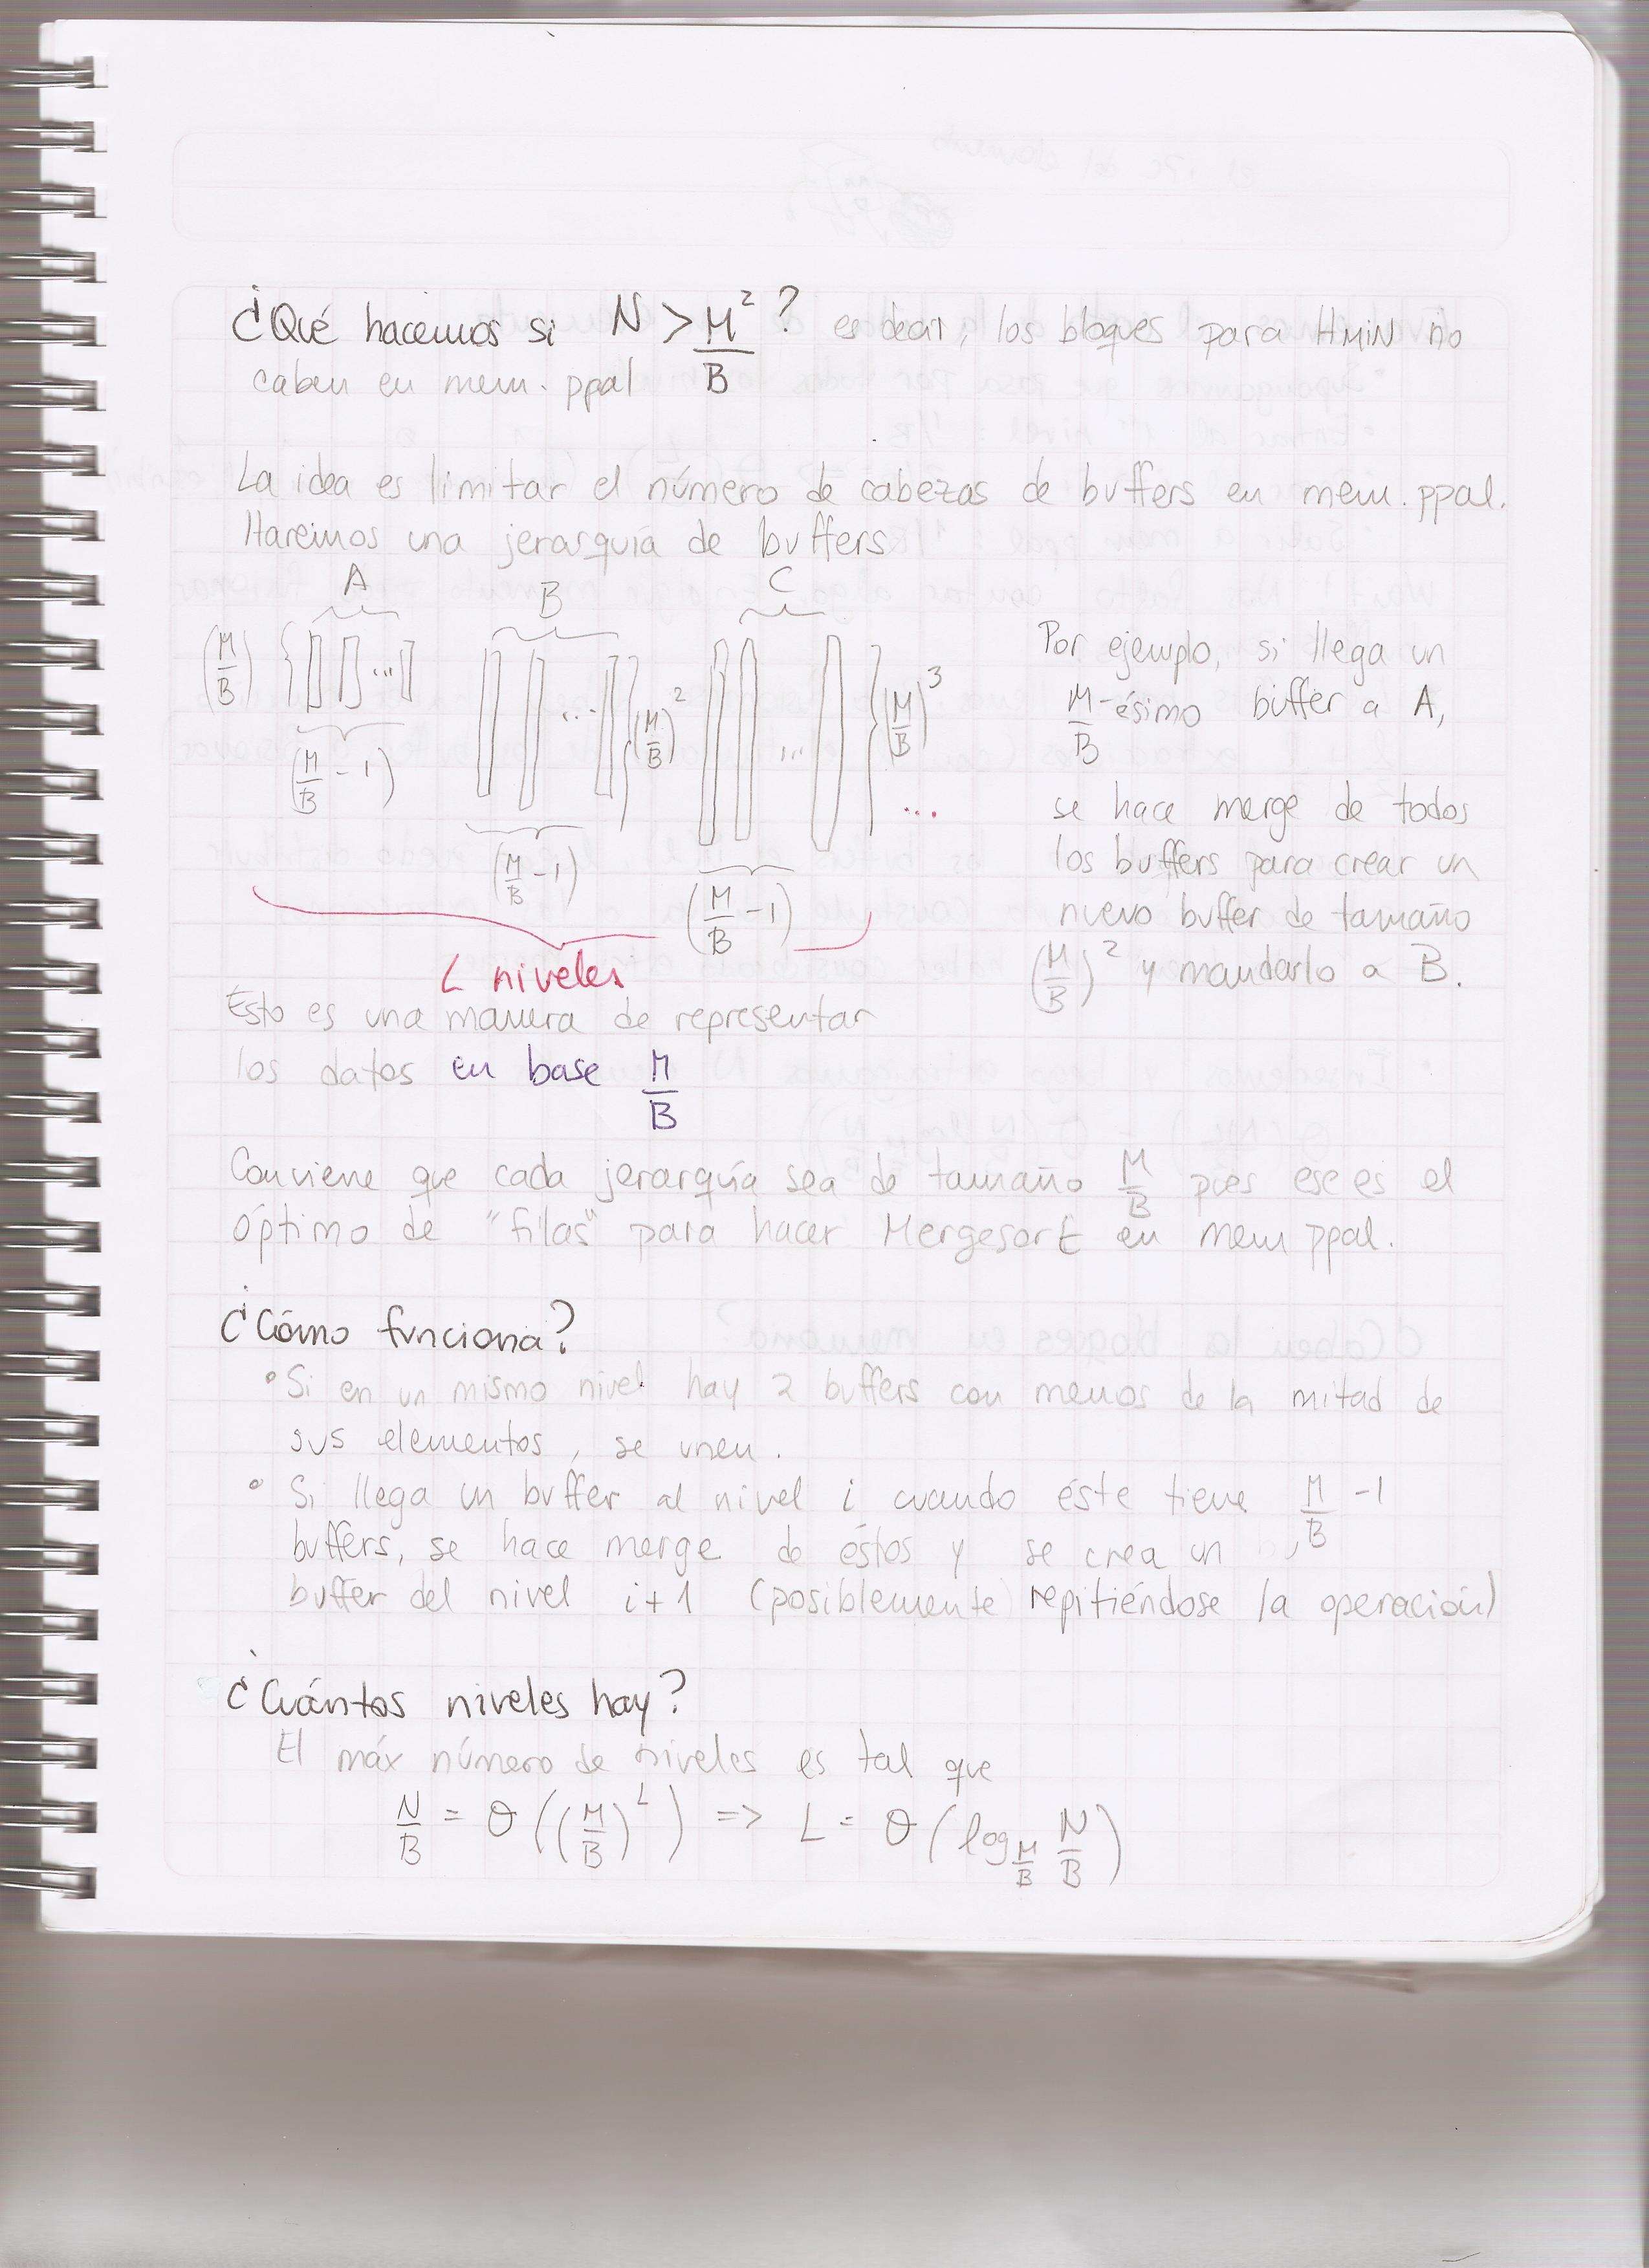 ¿Qué hacemos si N > M²/B ? es decir, los bloques para HMIN no
caben en mem. ppal
La idea es limitar el número de cabezas de buffers en mem. ppal.
Haremos una jerarquía de buffers
A B C
(M/B) { ... (M/B)² ... (M/B)³
(M/B - 1) (M/B - 1) (M/B - 1) ...
L niveles
Por ejemplo, si llega un
M/B-ésimo buffer a A,
se hace merge de todos
los buffers para crear un
nuevo buffer de tamaño
(M/B)² y mandarlo a B.
Esto es una manera de representar
los datos en base M/B
Conviene que cada jerarquía sea de tamaño M/B pues ese es el
óptimo de "filas" para hacer Mergesort en mem ppal.
¿Cómo funciona?
• Si en un mismo nivel hay 2 buffers con menos de la mitad de
sus elementos, se unen.
• Si llega un buffer al nivel i cuando éste tiene M/B - 1
buffers, se hace merge de éstos y se crea un
buffer del nivel i+1 (posiblemente repitiéndose la operación)
¿Cuántos niveles hay?
El máx número de niveles es tal que
N/B = θ((M/B)^L) => L = θ(log_{M/B} N/B)